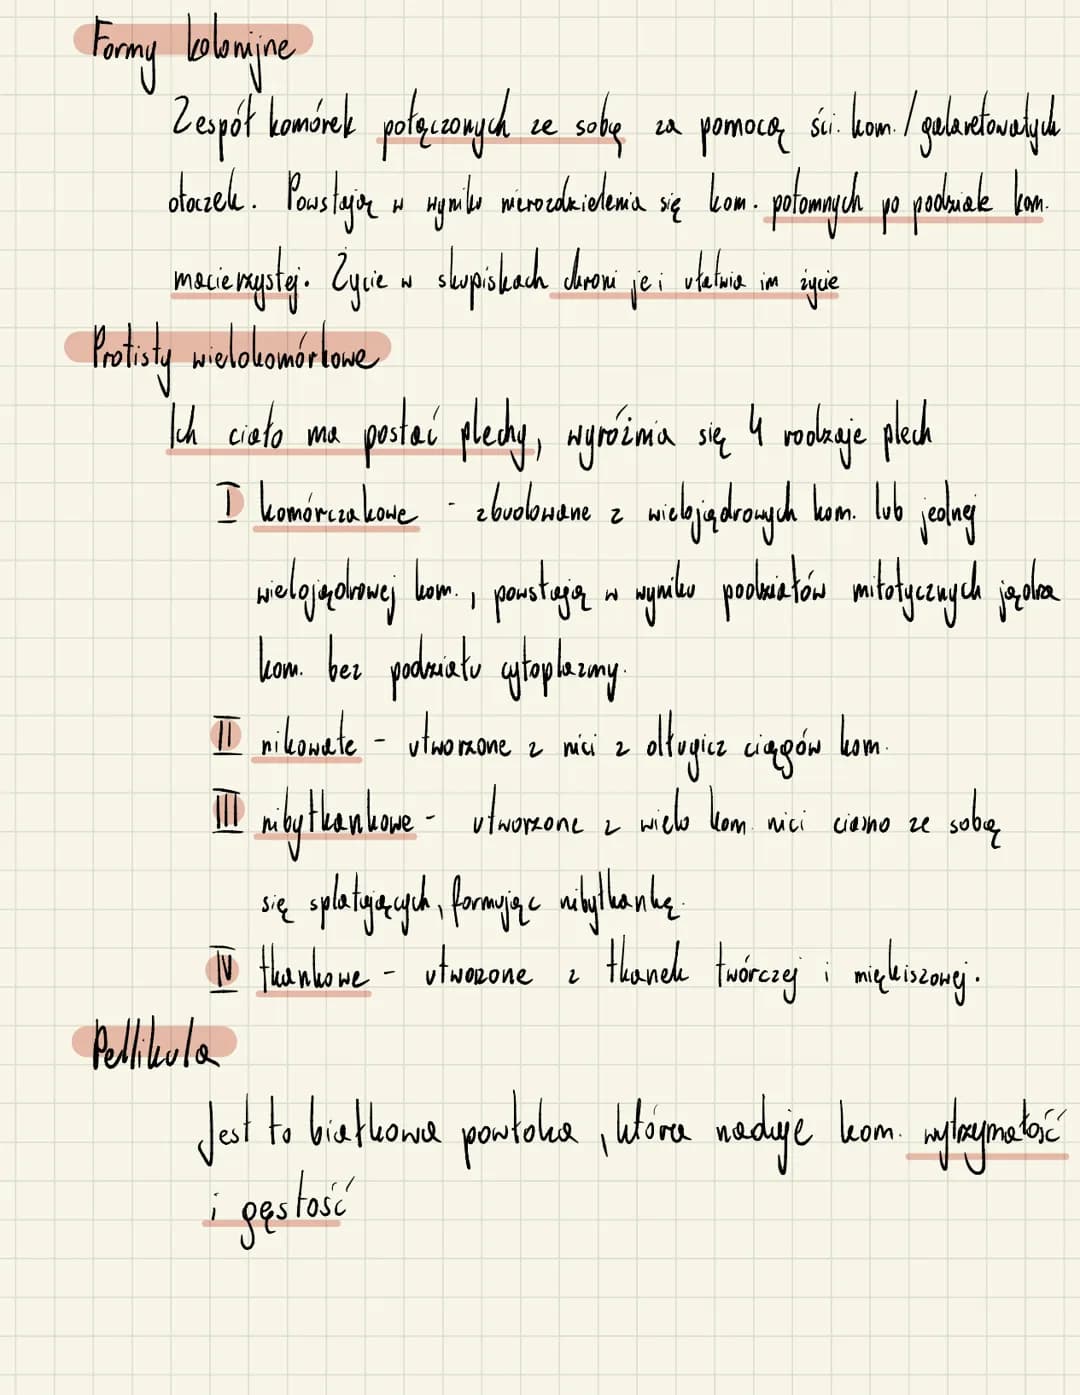 Formy kolonijne
Zespół komórek połączonych ze sobą za pomocą ści. kom. / galaretowatych
otoczek. Powstają w wyniku nierozdzielenia się kom. potomnych po podziale kom.
macierzystej. Życie w skupiskach chroni je i ułatwia im życie
Protisty wielokomórkowe
Ich ciało ma postać plechy, wyróżnia się 4 rodzaje plech
I komórczakowe - zbudowane z wielojądrowych kom. lub jednej
wielojądrowej kom., powstają w wyniku podziałów mitotycznych jądra
kom. bez podziału cytoplazmy.
II nikowate - utworzone z nici z długicz ciągów kom.
III nibytkankowe - utworzone z wielo kom. nici ciasno ze sobą
się splatających, formując nibytkankę.
IV tkankowe - utworzone z tkanek twórczej i miękiszowej.
Pellikula
Jest to białkowa powłoka, która nadaje kom. wytrzymałość
i gęstość